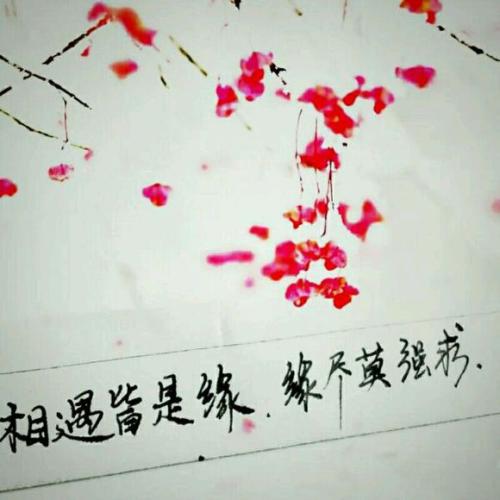 相遇皆是缘.缘尽莫强求.